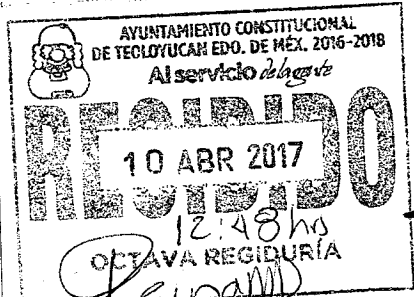 AYUNTAMIENTO CONSTITUCIONAL
DE TEOLOYUCAN EDO. DE MÉX. 2016-2018
Al servicio de la gente
RECIBIDO
10 ABR 2017
12:48 hs
OCTAVA REGIDURÍA